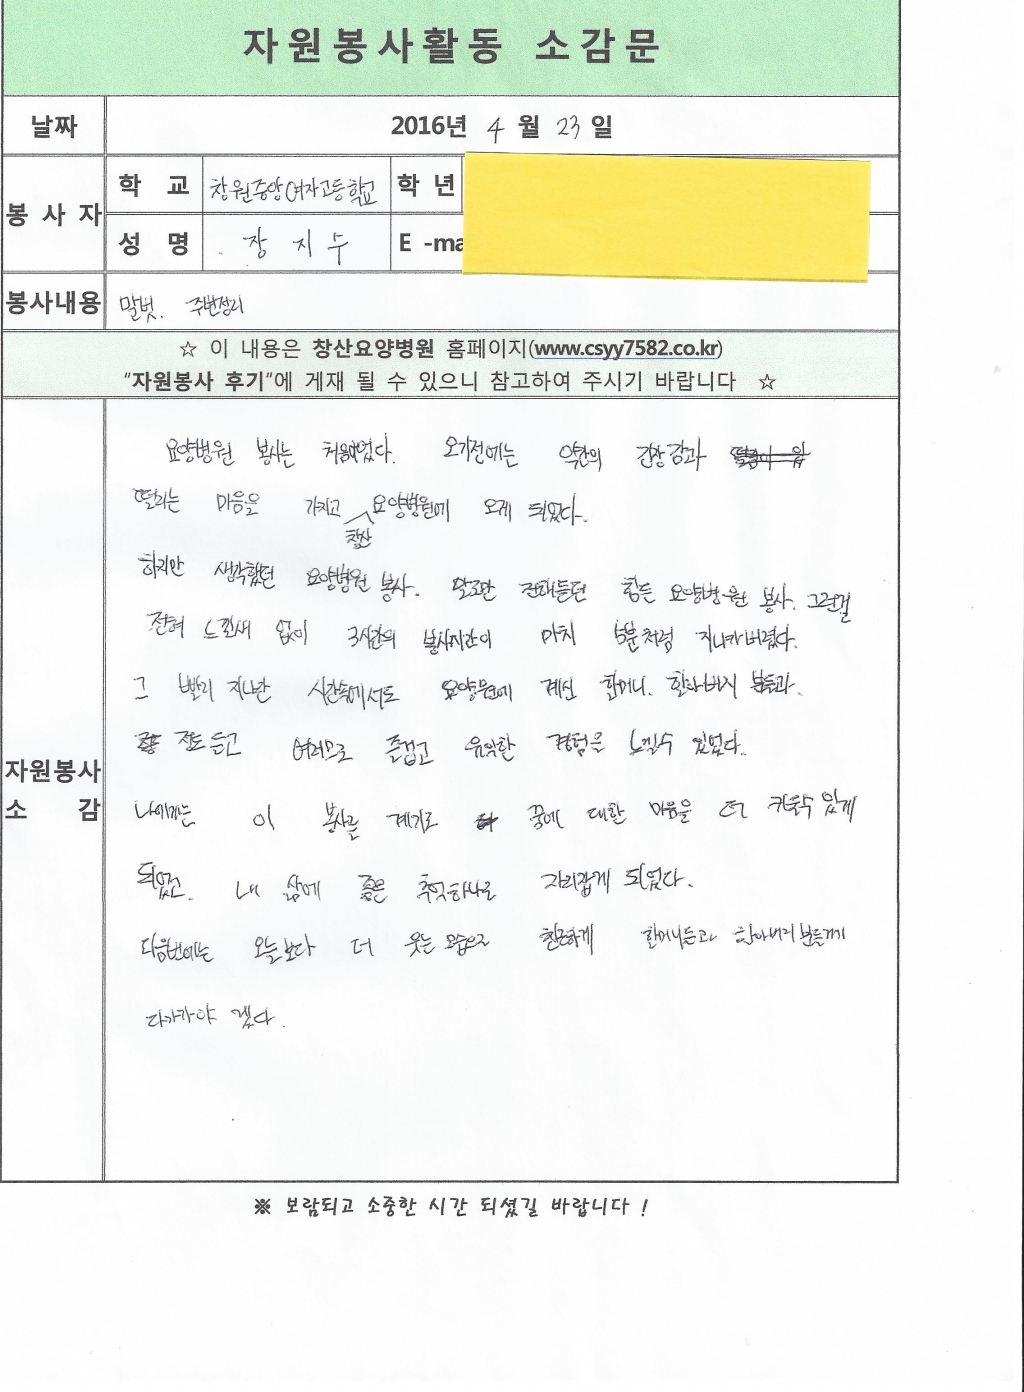 자원봉사활동 소감문
날짜 2016년 4 월 23 일
봉 사 자
학 교 창원중앙여자고등학교 학 년
성 명 장 지 수 E -ma
봉사내용 말벗. 주변정리
☆ 이 내용은 창산요양병원 홈페이지(www.csyy7582.co.kr)
"자원봉사 후기"에 게재 될 수 있으니 참고하여 주시기 바랍니다 ☆
자원봉사
소 감
요양병원 봉사는 처음이었다. 오기전에는 약간의 긴장감과
떨리는 마음을 가지고 창산 요양병원에 오게 되었다.
하지만 생각했던 요양병원 봉사. 말로만 전해듣던 힘든 요양병원 봉사. 그런걸
전혀 느낄새 없이 3시간의 봉사시간이 마치 5분처럼 지나가버렸다.
그 빨리 지나간 시간속에서도 요양원에 계신 할머니. 할아버지 분들과
정도 들고 여러모로 즐겁고 유익한 경험을 느낄수 있었다.
나에게는 이 봉사를 계기로 꿈에 대한 마음을 더 키울수 있게
되었고. 내 삶에 좋은 추억하나로 자리잡게 되었다.
다음번에는 오늘보다 더 웃는 모습으로 친근하게 할머니들과 할아버지분들께
다가가야 겠다.
※ 보람되고 소중한 시간 되셨길 바랍니다 !